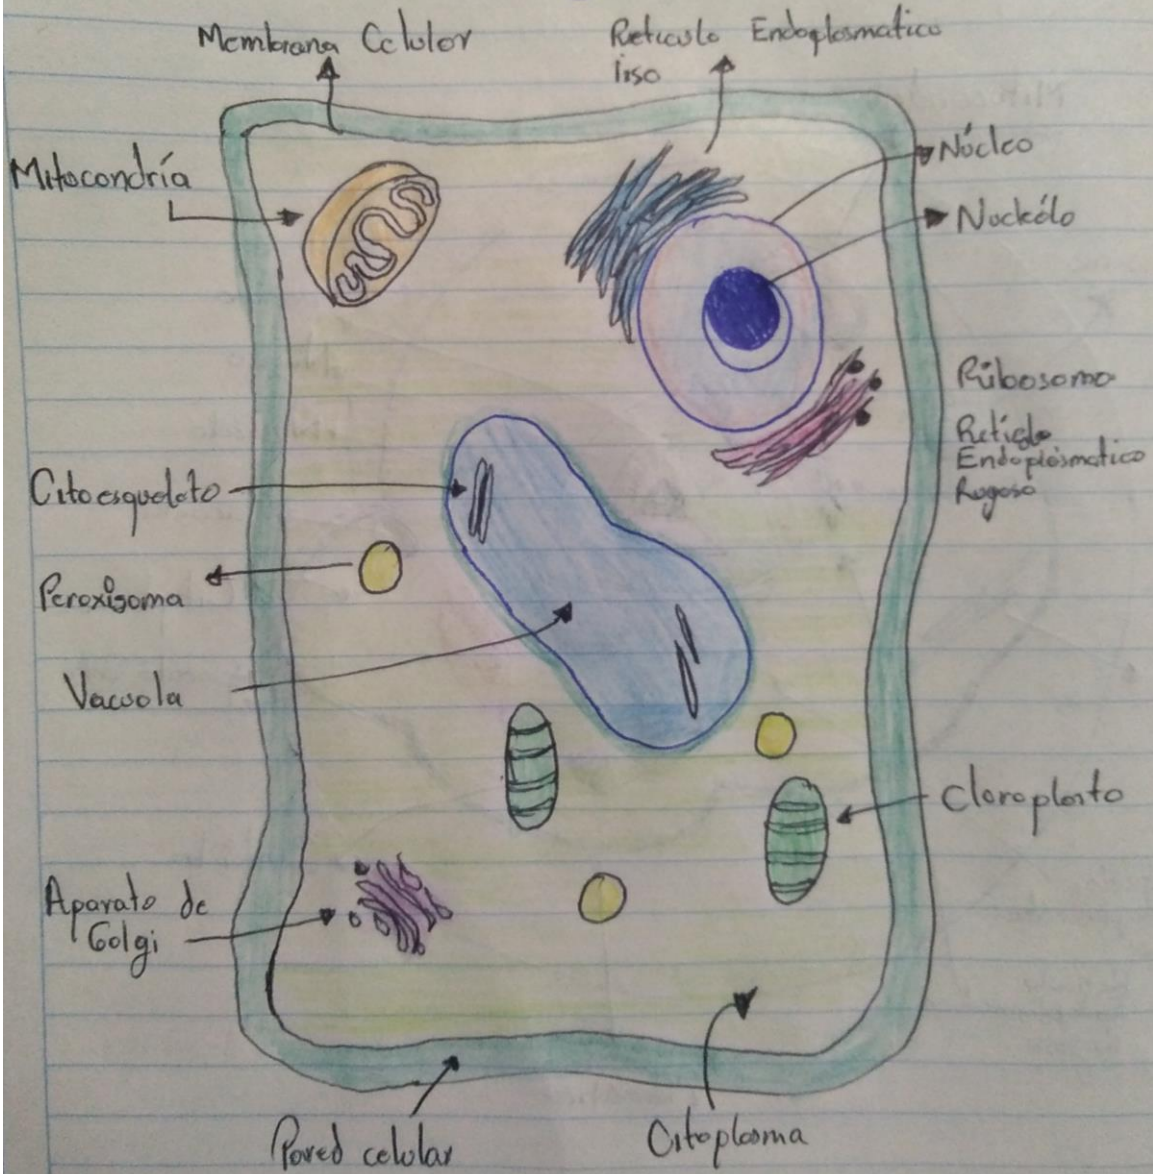 Membrana Celular
Reticulo Endoplasmatico
liso
Núcleo
Mitocondría
Nucleólo
Ribosoma
Retículo
Endoplásmatico
Rugoso
Citoesqueleto
Peroxisoma
Vacuola
Cloroplasto
Aparato de
Golgi
Pared celular
Citoplasma